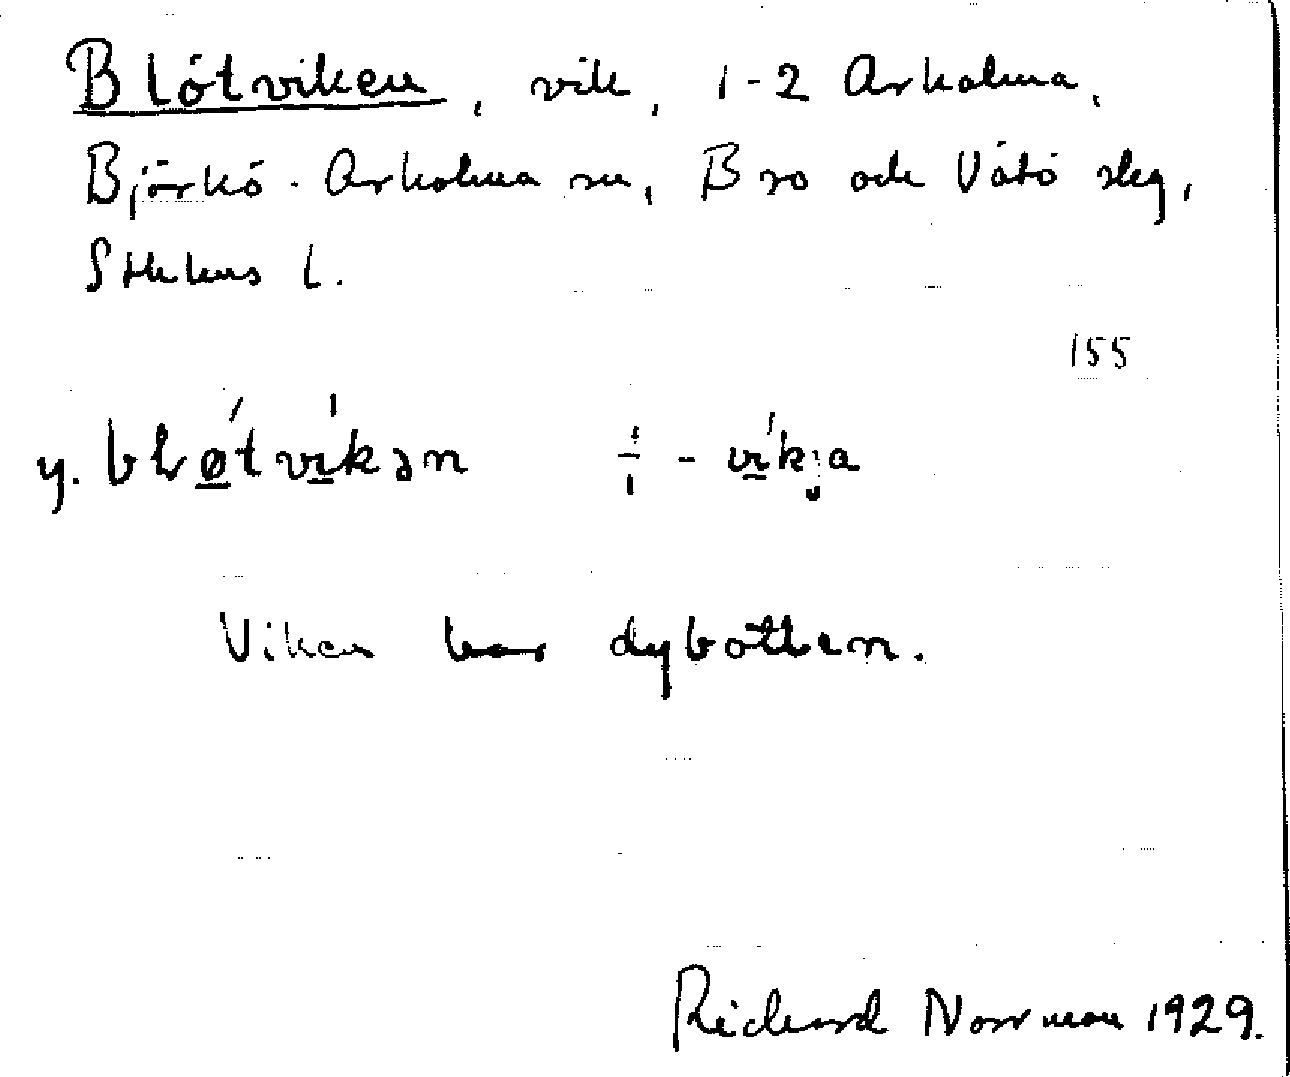 Blötviken, vik, 1-2 Arholma,
Björkö-Arholma sn, Bro och Vätö slg,
Sthlms l.
155
y. bløtvikən ÷ - vikja
Viken har dybotten.
Richard Norrman 1929.